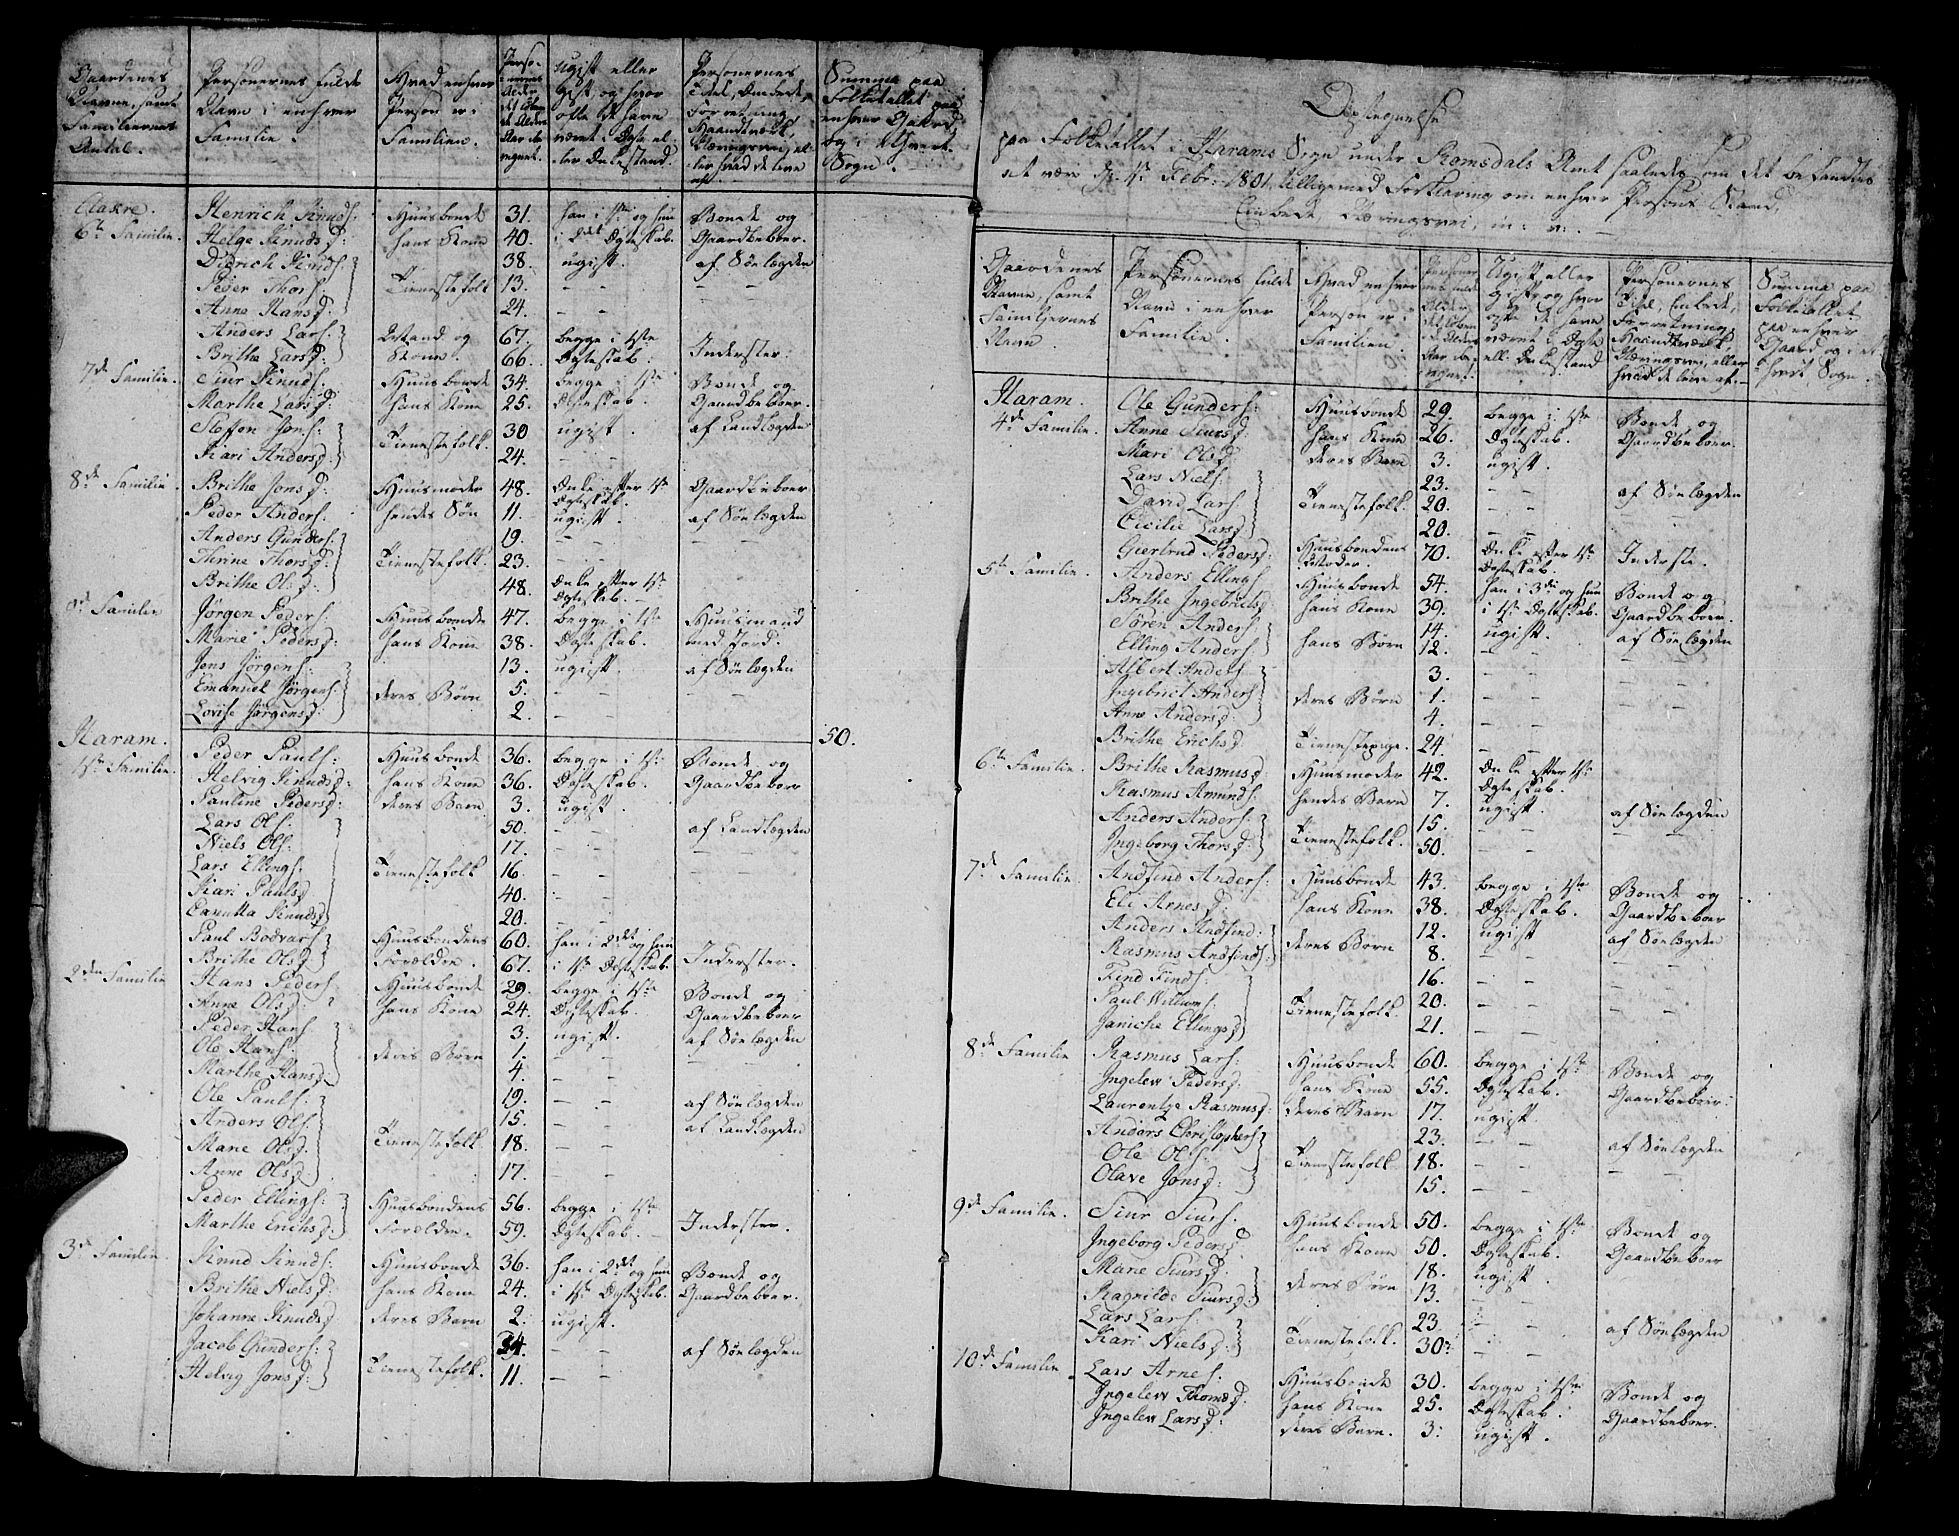 Gaardenes Navne, samt Familiernes Antal.
Personernes fulde Navn i enhver Familie.
Hvad enhver Person er i Familien.
Personernes Alder, det løbende Alders Aar be-regnet.
Ugivt eller Givt og hvor ofte de have været i Ægte eller Enkestand.
Personernes Titel, Embede, Forretning, Haandværk, Næringsvei, eller hvad de leve af.
Summa paa Folketallet paa enhver Gaard, og i ethvert Sogn.
6te Familie. Henrich Knuds: Huusbonde 31. han i 1ste og hun Bonde og
Helge Knudsd: hans Kone 40. i 2det Ægteskab. Gaardbeboer.
Didrich Knuds: 38. ugift. af Søelægden
Peder Thors: Tienestefolk 13. – – – –
Anne Hansd: 24. – –
Anders Lars: 67. begge i 1ste Inderster.
Brithe Larsd: Kone. 66. Ægteskab.
7de Familie. Siur Knuds: Huusbonde 34. begge i 1ste Bonde og
Marthe Larsd: hans Kone 25. Ægteskab. Gaardbeboer.
Steffen Jons: Tienestefolk. 30 ugift. af Landlægden
Kari Andersd: 24. – –
8de Familie. Brithe Jonsd: Huusmoder 48. Enke efter 1ste Ægteskab. Gaardbeboer
Peder Anders: hendes Søn 11. ugift. af Søelægden
Anders Gunders: 19. – – – –
Thrine Thorsd: Tienestefolk. 23. – –
Brithe Olsd: 48. Enke efter 1ste Ægteskab. –
9de Familie Jørgen Peders: Huusbonde 47. begge i 1ste Huusmand
Marie Pedersd: hans Kone 38. Ægteskab. med Jord.
Jens Jørgens: 13. ugift. af Søelægden
Emanuel Jørgens: deres Børn 5. – – – –
Lovise Jørgensd: 2. – –
50.
Haram.
1ste Familie. Peder Pauls: Huusbonde 36. begge i 1ste Bonde og
Helvig Knudsd: hans Kone 36. Ægteskab. Gaardbeboer
Pauline Pedersd: deres Barn 3. ugift.
Lars Ols: 50. – – af Landlægden
Niels Ols: 17. – – – –
Lars Ellings: Tienestefolk 16. – –
Kari Paulsd: 40. – –
Knudsd: 20. – –
Paul Bodvars: Huusbondens 60. han i 2det og hun Inderster.
Brithe Olsd: Forældre. 67. i 1ste Ægteskab.
2den Familie Hans Peders: Huusbonde 29. begge i 1ste Bonde og
Anne Olsd: hans Kone 24. Ægteskab. Gaardbeboer
Peder Hans: 3. ugift. af Søelægden
Ole Hans: deres Børn 1. – –
Marthe Hansd: 4. – –
Ole Pauls: 19. – – af Søelægden
Anders Ols: 15. – – af Landlægden
Marie Olsd: Tienestefolk 18. – –
Anne Olsd: 17. – –
Peder Ellings: Huusbondens 56. begge i 1ste Inderster.
Marthe Erichsd: Forældre. 59. Ægteskab. –
3de Familie. Knud Knuds: Huusbonde 36. han i 2det og hun Bonde og
Brithe Nielsd: hans Kone 24. i 1ste Ægteskab. Gaardbeboer.
Johanne Knudsd: deres Barn 2. ugift.
Jacob Gunders: Tienestefolk. 34. – – af Søelægden
Helvig Jonsd: 11. – –
Optegnelse
paa Folketallet i Harams Sogn under Romsdals Amt saaledes som det befandtes
at være d. 1ste Febr: 1801, tilligemed Forklaring om enhver Persons Stand,
Embede, Næringsvei, m: v: –
Gaardenes Navne, samt Familiernes Navn.
Personernes fulde Navn i enhver Familie.
Hvad enhver Person er i Familien.
Personernes fulde Alder, det løbende Alders Aar be-regnet.
Ugift eller Gift, og hvor ofte de have været i Ægte ell: Enkestand
Personernes Titel, Embede, Forretning, Haandværk, Næringsvei, eller hvad de leve af. –
Summa paa Folketallet paa enhver Gaard og i ethvert Sogn.
Haram.
4de Familie. Ole Gunders: Huusbonde 29. begge i 1ste Bonde og
Anne Siursd: hans Kone 26. Ægteskab. Gaardbeboer.
Mari Olsd: deres Barn 3. ugift.
Lars Niels: 23. – – af Søelægden
David Lars: Tienestefolk. 20. – – – –
Cicilie Larsd: 20. – –
Giertrud Pedersd: Huusbondens Moder. 70. Enke efter 1ste Ægteskab. Inderste.
5te Familie. Anders Ellings: Huusbonde 54. han i 3die og hun Bonde og
Brithe Ingebrietsd: hans Kone 39. i 1ste Ægteskab. Gaardbeboer.
Søren Anders: 14. ugift. af Søelægden
Elling Anders: hans Børn 12. – – – –
Albert Anders: 3. – –
Ingebriet Anders: deres Børn 1. – –
Anne Andersd: 4. – –
Brithe Erichsd: Tienestepige. 24. – –
6te Familie. Brithe Rasmusd: Huusmoder 42. Enke efter 1ste Ægteskab.
Rasmus Amunds: hendes Barn 7. ugift.
Anders Anders: Tienestefolk. 15. – – af Søelægden
Ingeborg Thorsd: 50. – –
7de Familie. Andfind Anders: Huusbonde 43. begge i 1ste Bonde og
Eli Arnesd: hans Kone 38. Ægteskab. Gaardbeboer
Anders Andfinds: deres Børn 12. ugift af Søelægden
Rasmus Andfinds: 8. – – – –
Find Finds: 16. – –
Paul Willums: Tienestefolk. 20. – – – –
Janiche Ellingsd: 21. – –
8de Familie Rasmus Lars: Huusbonde 60. begge i 1ste Bonde og
Ingelev Pedersd: hans Kone 55. Ægteskab. Gaardbeboer.
Laurentze Rasmusd: deres Barn 17. ugift.
Anders Christophers: 23. – – af Søelægden
Ole Ols: Tienestefolk. 18. – – – –
Olave Jonsd: 15. – –
9de Familie. Siur Siurs: Huusbonde 50. begge i 1ste Bonde og
Ingeborg Pedersd: hans Kone 50. Ægteskab. Gaardbeboer
Marie Siursd: deres Børn 18. ugift.
Ragnilde Siursd: 13. – –
Lars Lars: Tienestefolk. 23. – – af Søelægden
Kari Nielsd: 30. – – – –
10de Familie. Lars Arnes: Huusbonde 30. begge i 1ste Bonde og
Ingelev Thomæd: hans Kone 25. Ægteskab. Gaardbeboer.
Ingelev Larsd: deres Barn. 3. ugift.